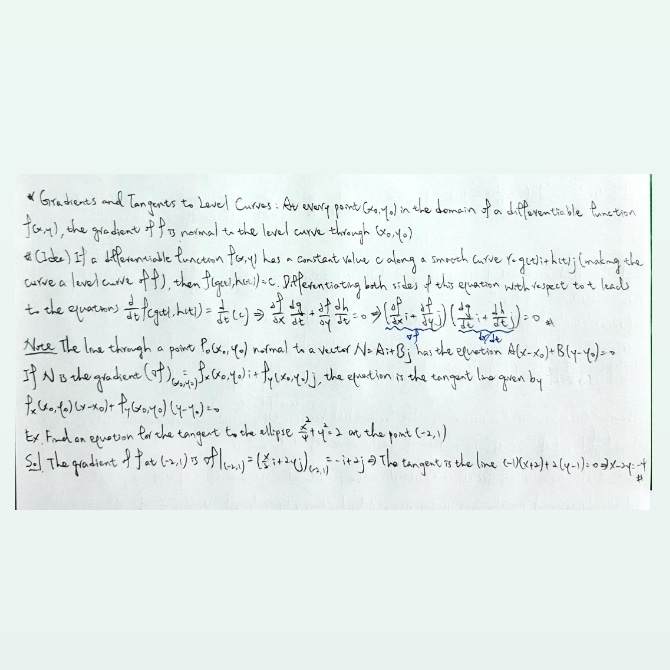 * Gradients and Tangents to Level Curves: At every point (x₀,y₀) in the domain of a differentiable function
f(x,y), the gradient of f is normal to the level curve through (x₀,y₀)
# (Idea) If a differentiable function f(x,y) has a constant value c along a smooth curve r=g(t)i+h(t)j (making the
curve a level curve of f), then f(g(t),h(t))=c. Differentiating both sides of this equation with respect to t leads
to the equations d/dt f(g(t),h(t)) = d/dt (c) ⇒ ∂f/∂x dg/dt + ∂f/∂y dh/dt = 0 ⇒ (∂f/∂x i + ∂f/∂y j)·(dg/dt i + dh/dt j) = 0 #
∇f dr/dt
Note The line through a point P₀(x₀,y₀) normal to a vector N=Ai+Bj has the equation A(x-x₀)+B(y-y₀)=0
If N is the gradient (∇f)(x₀,y₀) = fx(x₀,y₀)i+fy(x₀,y₀)j, the equation is the tangent line given by
fx(x₀,y₀)(x-x₀)+fy(x₀,y₀)(y-y₀)=0
Ex. Find an equation for the tangent to the ellipse x²/4+y²=2 at the point (-2,1)
Sol The gradient of f at (-2,1) is ∇f|(-2,1) = (x/2 i+2yj)(-2,1) = -i+2j ⇒ The tangent is the line (-1)(x+2)+2(y-1)=0 ⇒ x-2y=-4
#